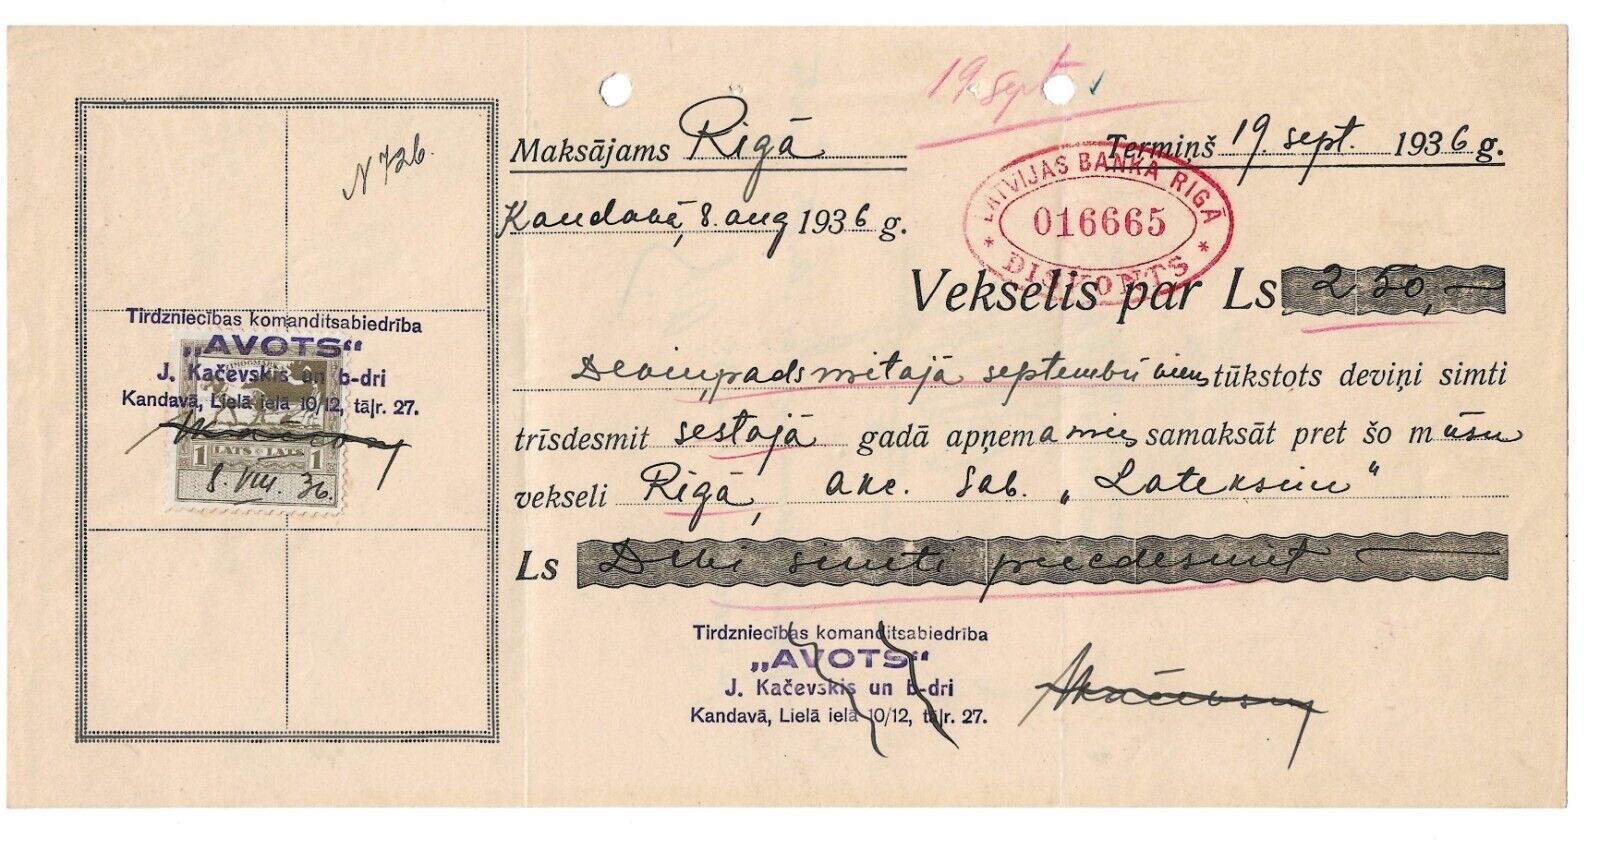 N 726.
19 sept.
Maksājams Rīgā
Termiņš 19. sept. 1936 g.
Kandavā, 8. aug 1936 g.
LATVIJAS BANKA RIGĀ
016665
* DISKONTS *
Vekselis par Ls 250,—
Deviņpadsmitajā septembrī viens tūkstots deviņi simti
trīsdesmit sestajā gadā apņemamies samaksāt pret šo mūsu
vekseli Rīgā, akc. sab. „Lateksim"
Ls Divi simti piecdesmit —
Tirdzniecības komanditsabiedrība
„AVOTS“
J. Kačevskis un b-dri
Kandavā, Lielā ielā 10/12, tāļr. 27.
1 LATS LATS 1
8. VIII. 36.
Tirdzniecības komanditsabiedrība
„AVOTS“
J. Kačevskis un b-dri
Kandavā, Lielā ielā 10/12, tāļr. 27.